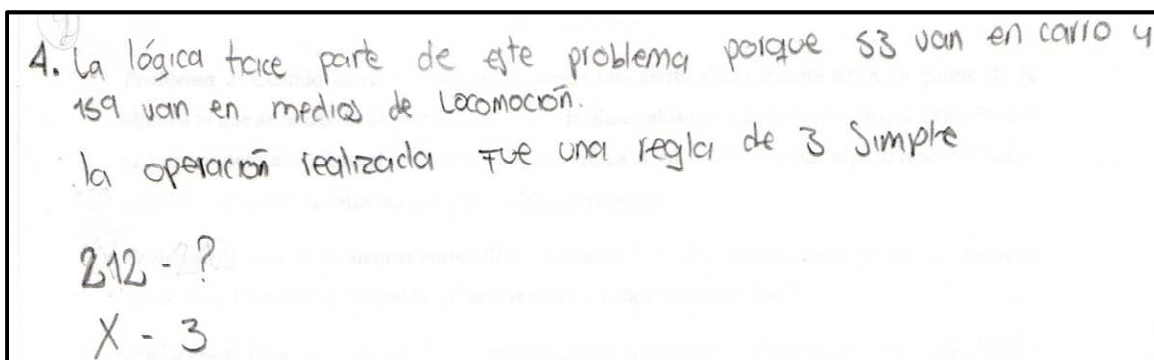 4. La lógica hace parte de este problema porque 53 van en carro y
159 van en medios de Locomoción.
la operación realizada fue una regla de 3 Simple
212 - ?
X - 3